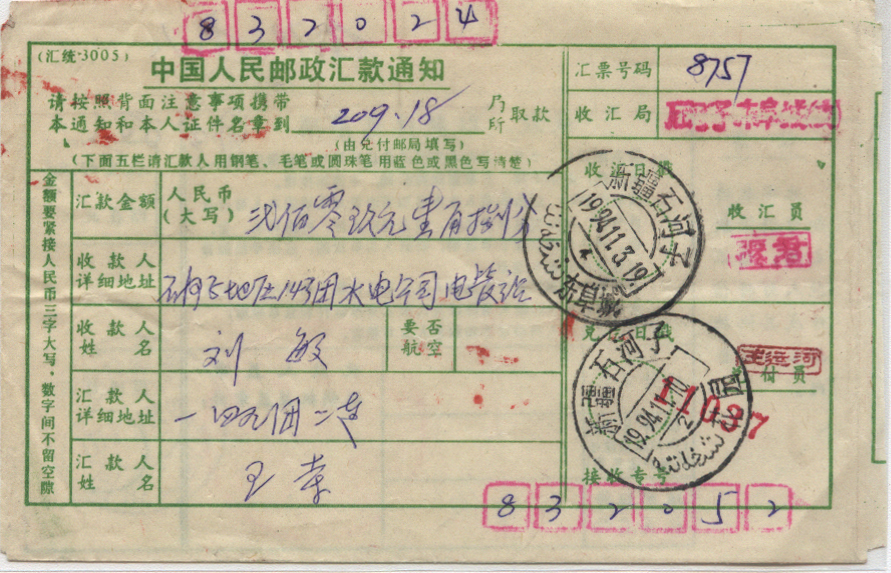 832024
(汇统-3005)
中国人民邮政汇款通知
请按照背面注意事项携带
本通知和本人证件名章到 209.18 局所取款
(由兑付邮局填写)
(下面五栏请汇款人用钢笔、毛笔或圆珠笔用蓝色或黑色写清楚)
金额要紧接人民币三字大写,数字间不留空隙
汇款金额 人民币(大写) 贰佰零玖元壹角捌分
收款人详细地址 石河子地区143团水电公司电管站
收款人姓名 刘敏
要否航空
汇款人详细地址 一四九团二连
汇款人姓名
汇票号码 8757
收汇局
收汇日戳
收汇员
新疆石河子
1994.11.3.19
兑付日戳
兑付员
新疆石河子
1994.11.10
11097
接收专号
832052